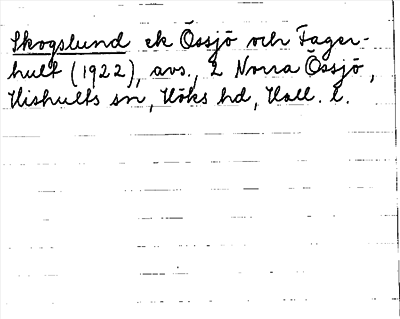 Skogslund ek Össjö och Fager-
hult (1922), avs., 2 Norra Össjö,
Hishults sn, Höks hd, Hall. l.